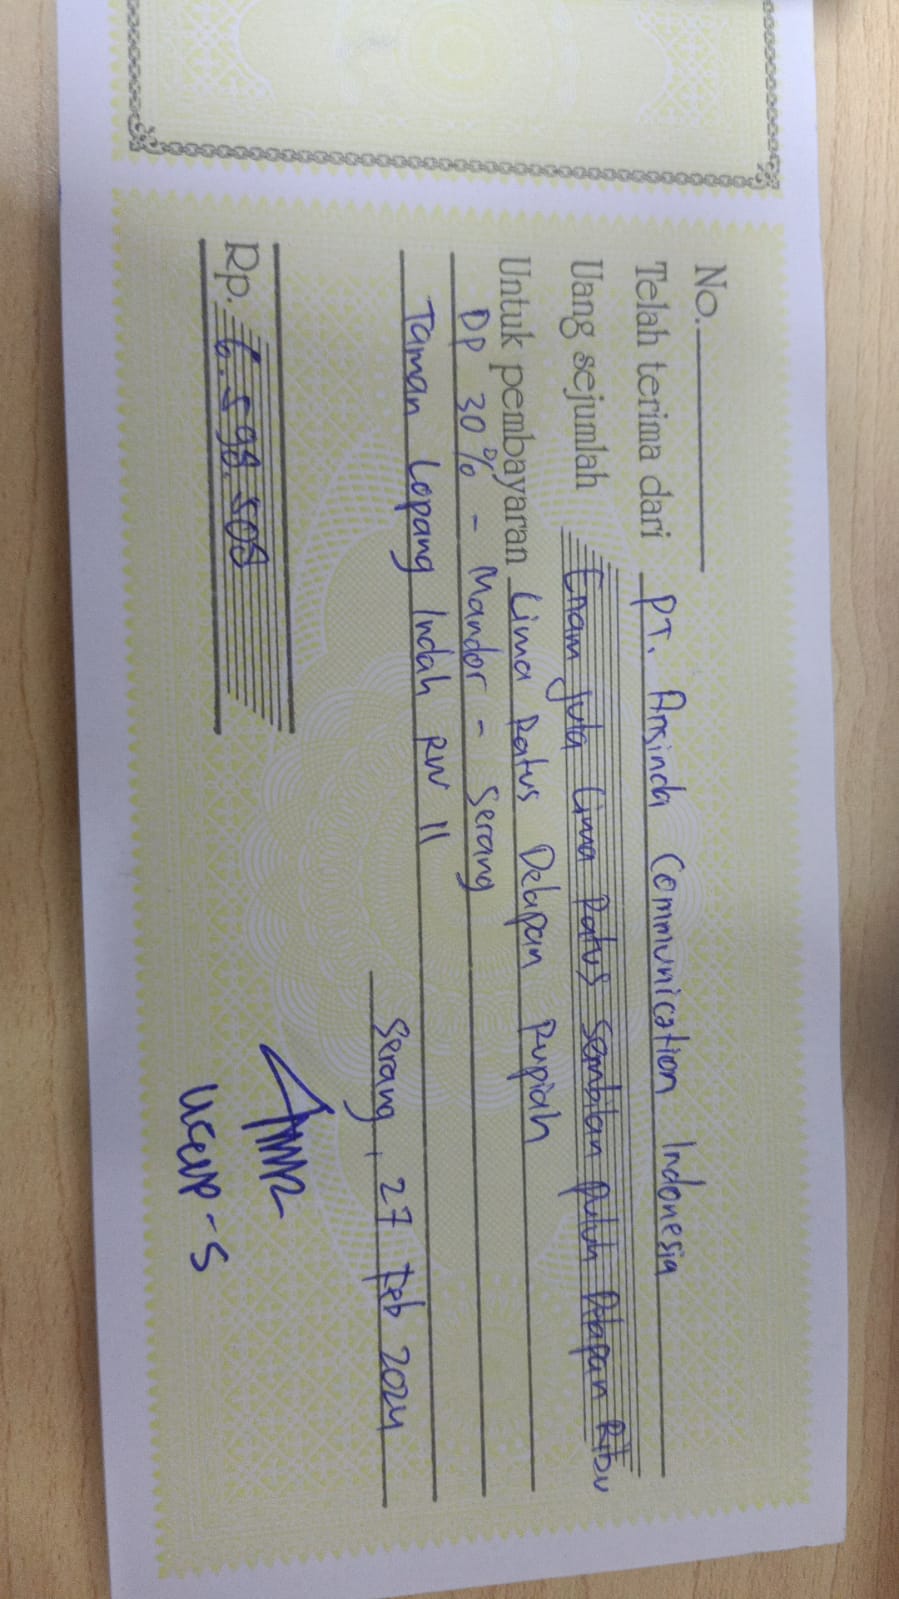 No.
Telah terima dari PT. Arsinda Communication Indonesia
Uang sejumlah Enam juta Lima Ratus Sembilan puluh Delapan Ribu
Untuk pembayaran Lima Ratus Delapan Rupiah
DP 30% - Mandor - Serang
Taman Lopang Indah RW 11
Serang, 27 Feb 2024
Rp. 6.598.508
UCUP-S